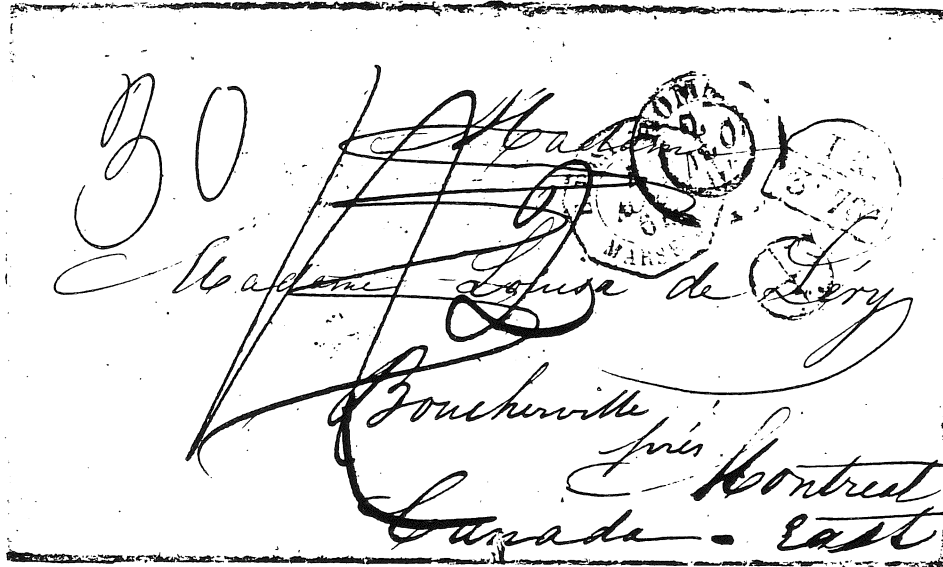 30
Madame
ROMA
MARSE
Madame Louisa de Léry
Boucherville
près Montreal
Canada - East